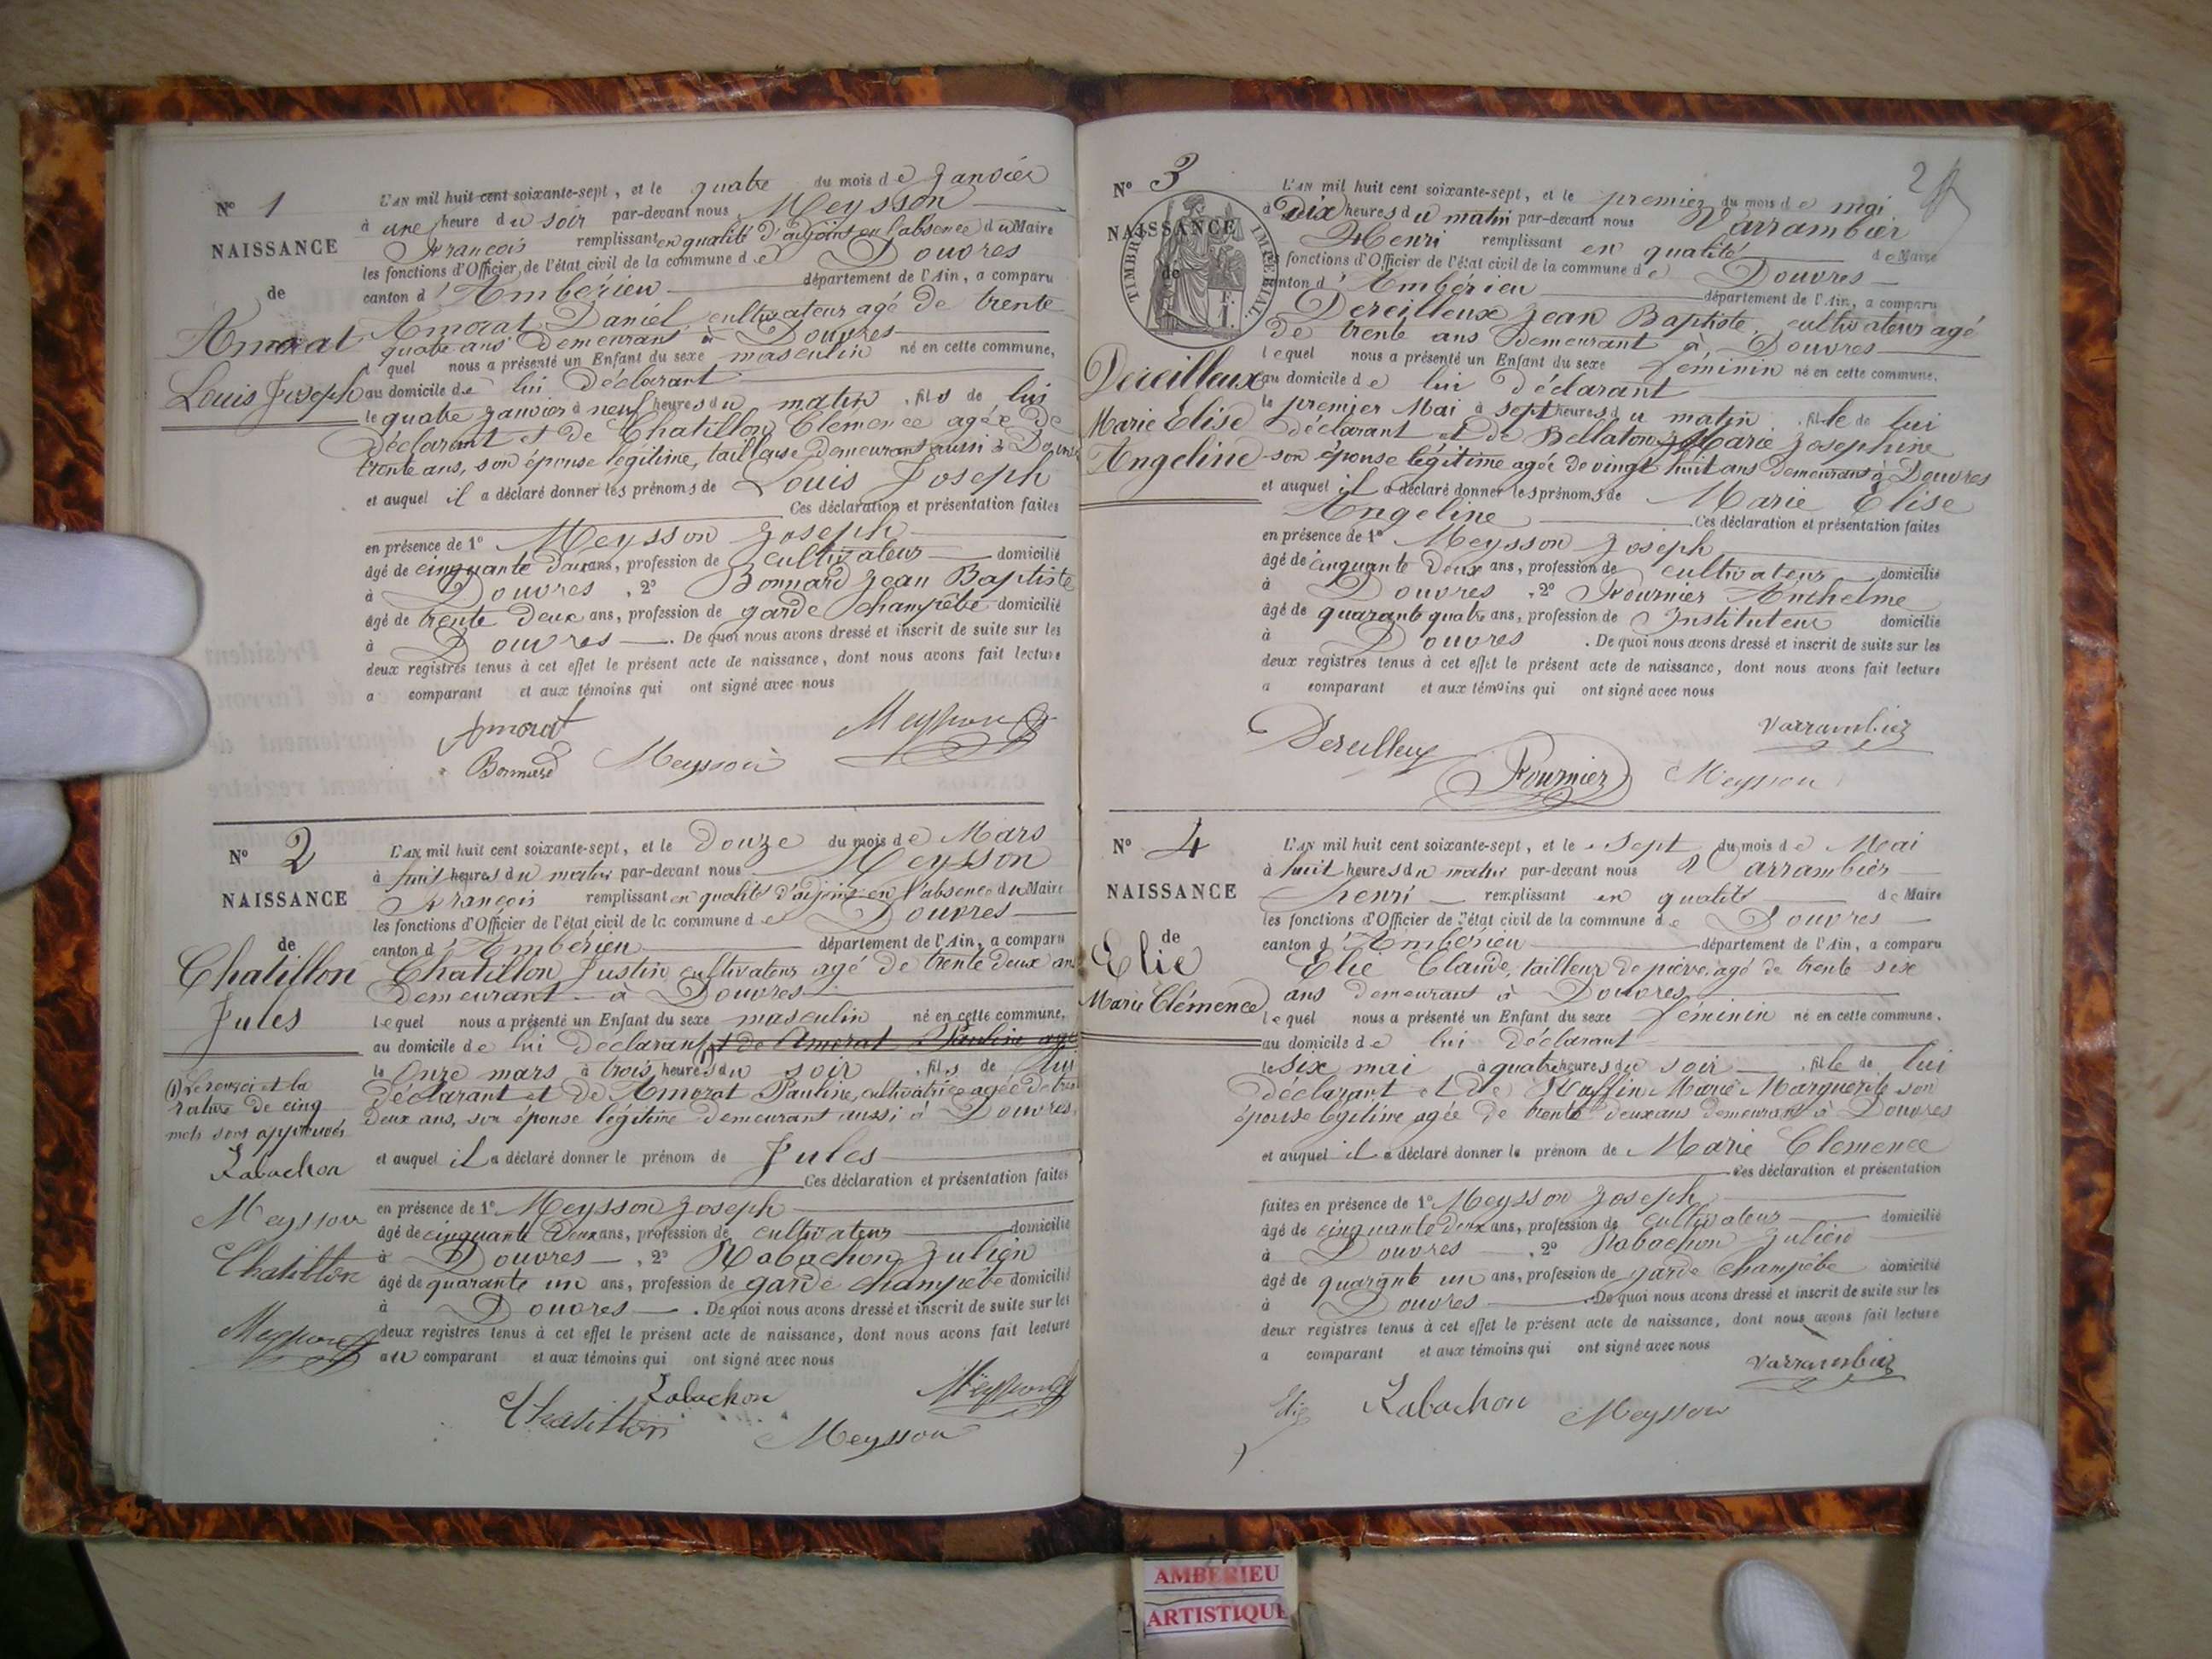 Nº 1
NAISSANCE
de
Amorat
Louis Joseph
L'AN mil huit cent soixante-sept, et le quatre du mois de Janvier
à une heure du soir par-devant nous Meysson
François remplissant en qualité d'adjoint en l'absence du Maire
les fonctions d'Officier de l'état civil de la commune de Douvres
canton d'Ambérieu département de l'Ain, a comparu
Amorat Daniel, cultivateur agé de trente
quatre ans demeurant à Douvres
lequel nous a présenté un Enfant du sexe masculin né en cette commune,
au domicile de lui Déclarant
le quatre Janvier à neuf heures du matin, fils de lui
déclarant et de Chatillon Clemence agée de
trente ans, son épouse légitime, tailleuse demeurant aussi à Douvres
et auquel il a déclaré donner les prénoms de Louis Joseph
Ces déclaration et présentation faites
en présence de 1º Meysson Joseph
âgé de cinquante deux ans, profession de cultivateur domicilié
à Douvres, 2º Bonnard Jean Baptiste
âgé de trente deux ans, profession de garde champêtre domicilié
à Douvres. De quoi nous avons dressé et inscrit de suite sur les
deux registres tenus à cet effet le présent acte de naissance, dont nous avons fait lecture
a comparant et aux témoins qui ont signé avec nous
Amorat
Bonnard Meysson Meysson
Nº 2
NAISSANCE
de
Chatillon
Jules
(1) Le renvoi et la
rature de cinq
mots sont approuvés
Rabachon
Meysson
Chatillon
Meysson
L'AN mil huit cent soixante-sept, et le Douze du mois de Mars
à huit heures du matin par-devant nous Meysson
François remplissant en qualité d'adjoint en l'absence du Maire
les fonctions d'Officier de l'état civil de la commune de Douvres
canton d'Ambérieu département de l'Ain, a comparu
Chatillon Justin cultivateur agé de trente deux ans
demeurant à Douvres
lequel nous a présenté un Enfant du sexe masculin né en cette commune,
au domicile de lui Déclarant et de Amorat Pauline agée
le Onze mars à trois heures du soir, fils de lui
déclarant et de Amorat Pauline, cultivatrice agée de trente
deux ans, son épouse légitime demeurant aussi à Douvres
et auquel il a déclaré donner le prénom de Jules
Ces déclaration et présentation faites
en présence de 1º Meysson Joseph
âgé de cinquante deux ans, profession de cultivateur domicilié
à Douvres, 2º Rabachon Julien
âgé de quarante un ans, profession de garde champêtre domicilié
à Douvres. De quoi nous avons dressé et inscrit de suite sur les
deux registres tenus à cet effet le présent acte de naissance, dont nous avons fait lecture
au comparant et aux témoins qui ont signé avec nous
Rabachon Meysson
Chatillon Meysson
2
Nº 3
NAISSANCE
de
TIMBRE IMPERIAL
Dereilleux
Marie Elise
Angeline
L'AN mil huit cent soixante-sept, et le premier du mois de mai
à Dix heures du matin par-devant nous Varrambier
Henri remplissant en qualité de Maire
les fonctions d'Officier de l'état civil de la commune de Douvres
canton d'Ambérieu département de l'Ain, a comparu
Dereilleux Jean Baptiste, cultivateur agé
de trente ans Demeurant à Douvres
lequel nous a présenté un Enfant du sexe féminin né en cette commune.
au domicile de lui déclarant
le premier Mai à sept heures du matin, fille de lui
déclarant et de Bellaton Marie Josephine
son épouse légitime agée de vingt huit ans demeurant à Douvres
et auquel il a déclaré donner les prénoms de Marie Elise
Angeline Ces déclaration et présentation faites
en présence de 1º Meysson Joseph
âgé de cinquante deux ans, profession de cultivateur domicilié
à Douvres, 2º Fournier Anthelme
âgé de quarante quatre ans, profession de Instituteur domicilié
à Douvres. De quoi nous avons dressé et inscrit de suite sur les
deux registres tenus à cet effet le présent acte de naissance, dont nous avons fait lecture
a comparant et aux témoins qui ont signé avec nous
Dereilleux Varrambier
Fournier Meysson
Nº 4
NAISSANCE
de
Elie
Marie Clémence
L'AN mil huit cent soixante-sept, et le Sept du mois de Mai
à huit heures du matin par-devant nous Varrambier
henri remplissant en qualité de Maire
les fonctions d'Officier de l'état civil de la commune de Douvres
canton d'Ambérieu département de l'Ain, a comparu
Elie Claude, tailleur de pierre, agé de trente six
ans demeurant à Douvres
lequel nous a présenté un Enfant du sexe féminin né en cette commune.
au domicile de lui déclarant
le six mai à quatre heures du soir, fille de lui
déclarant et de Ruffin Marie Marguerite son
épouse légitime agée de trente deux ans demeurant à Douvres
et auquel il a déclaré donner le prénom de Marie Clemence
Ces déclaration et présentation
faites en présence de 1º Meysson Joseph
âgé de cinquante deux ans, profession de cultivateur domicilié
à Douvres, 2º Rabachon Julien
âgé de quarante un ans, profession de garde champêtre domicilié
à Douvres De quoi nous avons dressé et inscrit de suite sur les
deux registres tenus à cet effet le présent acte de naissance, dont nous avons fait lecture
a comparant et aux témoins qui ont signé avec nous
Varrambier
Elie Rabachon Meysson
AMBERIEU
ARTISTIQUE